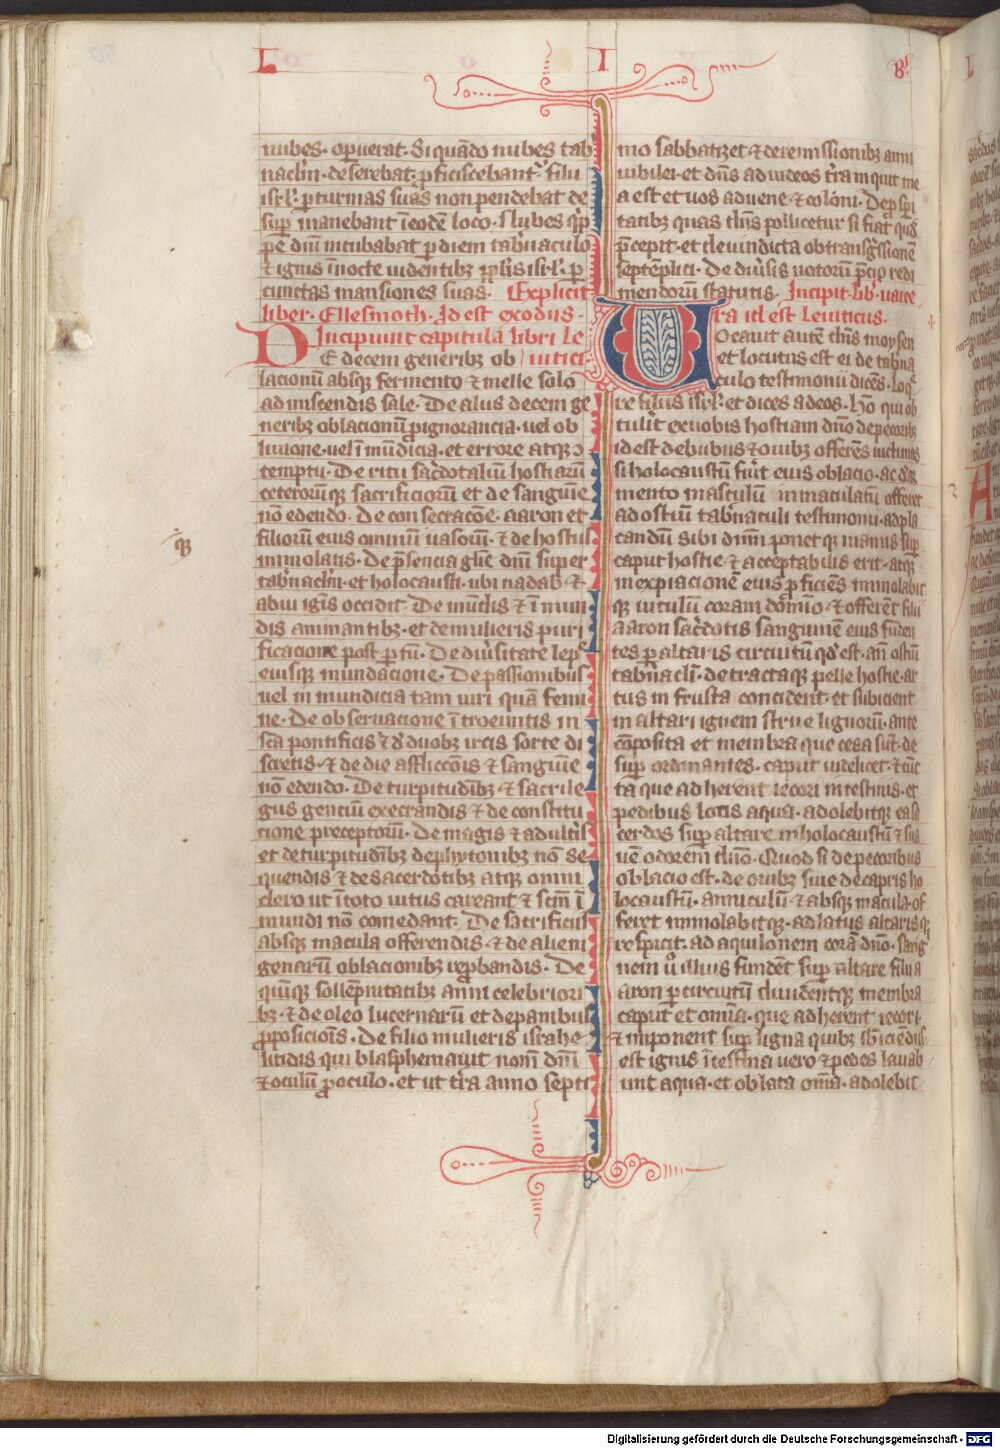 L I B
nubes · operuerat · Si quādo nubes tab
nacl'm · deserebat · proficiscebant' · filii
isrl' · per turmas suas non pendebat de
sup manebant ī eodē loco · Nubes q'p
pe dn̄i incubabat p diem tab'naculo
⁊ ignis ī nocte uidentibꝫ pp̄lis isrl' · p
cunctas mansiones suas · Explicit
liber · Ellesmoth · Id est exodus ·
Incipiunt capitula libri le
DE decem generibꝫ ob uitici
lacionū absqꝫ fermento ⁊ melle solo
admiscendis sale · De aliis decem ge
neribꝫ oblacionū p ignorancia · uel ob
liuione · uel ī mūdicia · et errore atqꝫ ↄ
temptu · De ritu sac'dotaliū hostiarū
ceterorūqꝫ sacrificiorū et de sanguīe
nō edendo · De consecracōe · aaron et
filiorū eius omniū uasorū · ⁊ de hostiis
immolatis · De p̄sencia gl'ie dn̄i super
tab'nacl'm · et holocausti · ubi nadab ⁊
abiu ignis occidit · De mūdis ⁊ ī mun
dis animantibꝫ · et de mulieris puri
ficacione post ptū · De diu'sitate lep̄
eiusqꝫ mundacione · De passionibus
uel in mundicia tam uiri quā femi
ne · De obseruacione ītroeuntis in
sc̄a pontificis ⁊ d' duobꝫ ircis sorte di
scretis · ⁊ de die afflicc̄ois ⁊ sanguīe
nō edendo · De turpitudībꝫ ⁊ sacrile
gus genciū execrandis ⁊ de constitu
tione preceptorū · de magis ⁊ adult'is
et de turpitudībꝫ de phytonibꝫ nō se
quendis ⁊ de sacerdotibꝫ atqꝫ omni
clero ut ī toto uitiis careant ⁊ sc̄m ī
mundi nō comedant · De sacrificiis
absqꝫ macula offerendis · ⁊ de alieni
genarū oblacionibꝫ reprobandis · De
quīqꝫ sollēpnitatibꝫ anni celebriori
bꝫ · ⁊ de oleo lucernarū et de panibus
proposiciōis · De filio mulieris israhe
litidis qui blasphemauit nom̄ dn̄i
⁊ oculū pro oculo · et ut t'ra anno septi
mo sabbatizet ⁊ de remissionibꝫ anni
iubilei · et dn̄s ad iudeos t'ra inquit me
a est et uos aduene ⁊ coloni · De prosperi
tatibꝫ quas dn̄s pollicetur si fiat quod
p̄cepit · et de uindicta ob transg'ssionē
septēplici · De diu'sis uotorū p̄cio redi
mendorū statutis · Incipit · lib' · uaiec
ra id est Leuiticus ·
Uocauit autē dn̄s moysen
et locutus est ei de tab'na
culo testimonii dicēs · Loq'
re filiis isrl' · et dices ad eos · Hō qui ob
tulit ex uobis hostiam dn̄o de pecoribꝫ
id est de bubus ⁊ ouibꝫ offerēs uictimas
si holocaustū fu'it eius oblacio · ac d' ar
mento masculū immaculatū offeret
ad ostiū tab'naculi testimonii · ad pla
candū sibi dn̄m ponet qꝫ manus sup
caput hostie · ⁊ acceptabilis erit · atqꝫ
in expiacionē eius proficiēs immolabit
qꝫ uitulū coram domino · ⁊ offerēt filii
aaron sac'dotis sanguinē eius fūden
tes p altaris circuitū qd' est · an̄ ostiū
tab'nacl'i · detractaqꝫ pelle hostie · ar
tus in frusta concident · et subicient
in altari ignem strue lignorū · ante
cōposita et membra que cesa sūt · de
sup ordinantes · caput uidelicet · ⁊ cūc
ta que adherent iecori intestinis · et
pedibus lotis aqua · adolebitqꝫ ea sa
cerdos sup altare in holocaustū ⁊ sua
uē odorēm dn̄o · Quod si de pecoribus
oblacio est · de ouibꝫ siue de capris ho
locaustū · anniculū · ⁊ absqꝫ macula · of
feret immolabitqꝫ · ad latus altaris q'
respicit · ad aquilonem corā dn̄o · sang'
nem u'o illius fundēt sup altare filii a
aron p circuitū diuidentqꝫ membra
caput et omīa · que adherent iecori ·
⁊ imponent sup ligna quibꝫ sb'iciēdus
est ignis ītestina uero ⁊ pedes lauab
unt aqua · et oblata omīa · adolebit
Digitalisierung gefördert durch die Deutsche Forschungsgemeinschaft - DFG